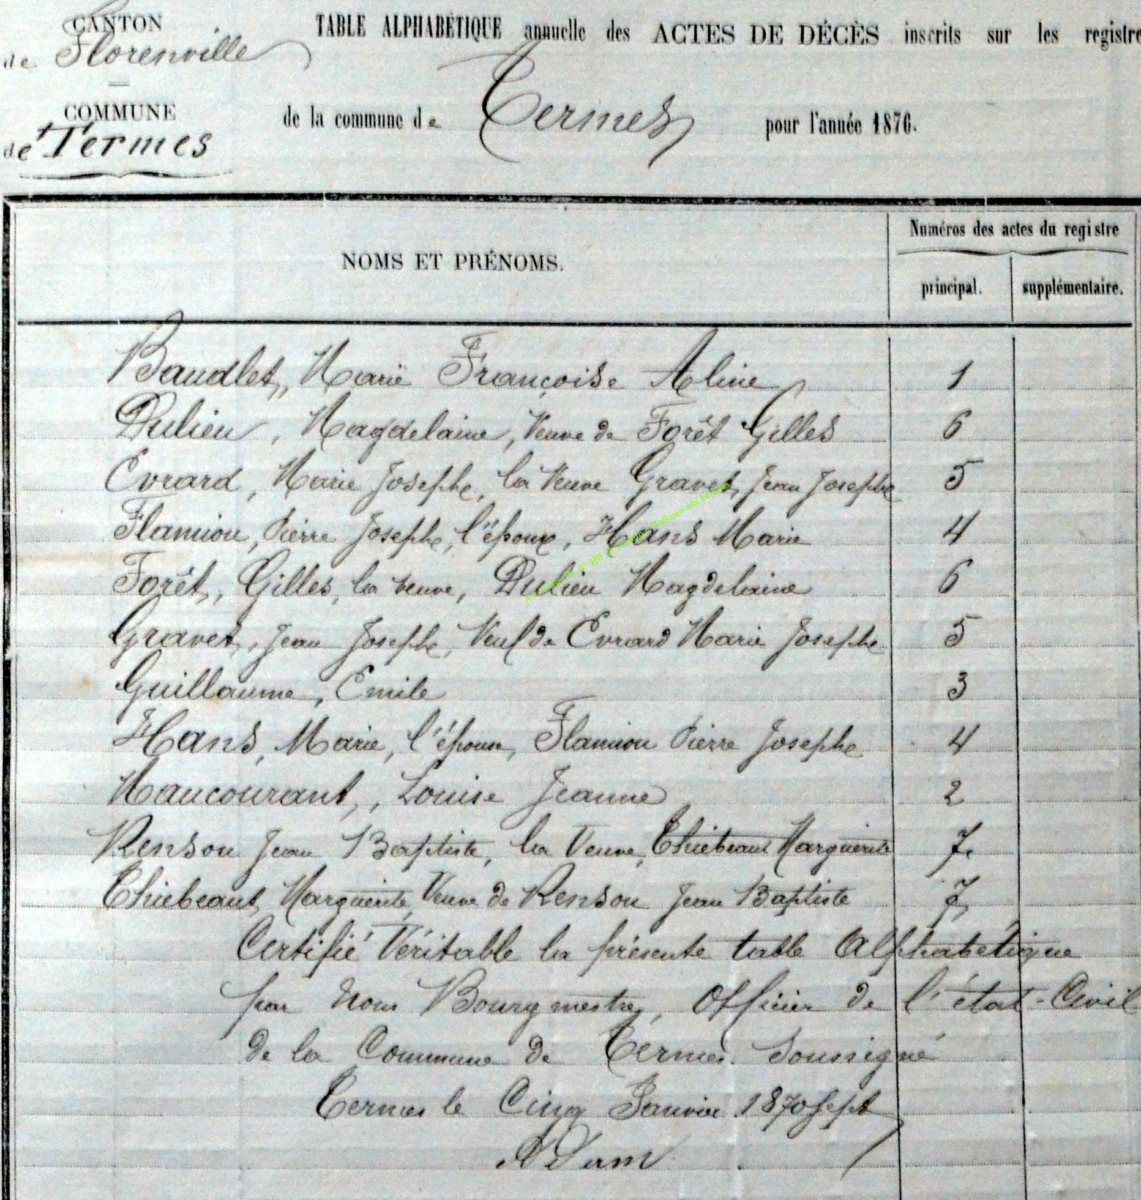 CANTON
de Florenville
TABLE ALPHABÉTIQUE annuelle des ACTES DE DÉCÈS inscrits sur les registre
COMMUNE
de Termes
de la commune de Termes pour l'année 1876.
NOMS ET PRÉNOMS.
Numéros des actes du registre
principal. supplémentaire.
Baudlet, Marie Françoise Aline 1
Dulieu, Magdelaine, Veuve de Forêt Gilles 6
Evrard, Marie Josephe, la Veuve Gravet, Jean Josephe 5
Flamion, Pierre Josephe, l'époux, Hans Marie 4
Forêt, Gilles, la veuve, Dulieu Magdelaine 6
Gravet, Jean Josephe, Veuf de Evrard Marie Josephe 5
Guillaume, Emile 3
Hans, Marie, l'épouse, Flamion Pierre Josephe 4
Maucourant, Louise Jeanne 2
Renson Jean Baptiste, la Veuve, Thiebeaut Marguerite 7
Thiebeaut, Marguerite, Veuve de Renson Jean Baptiste 7
Certifié Véritable la présente table Alphabétique
par Nous Bourgmestre, Officier de l'état-Civil
de la Commune de Termes. Soussigné
Termes le Cinq Janvier 1870 sept